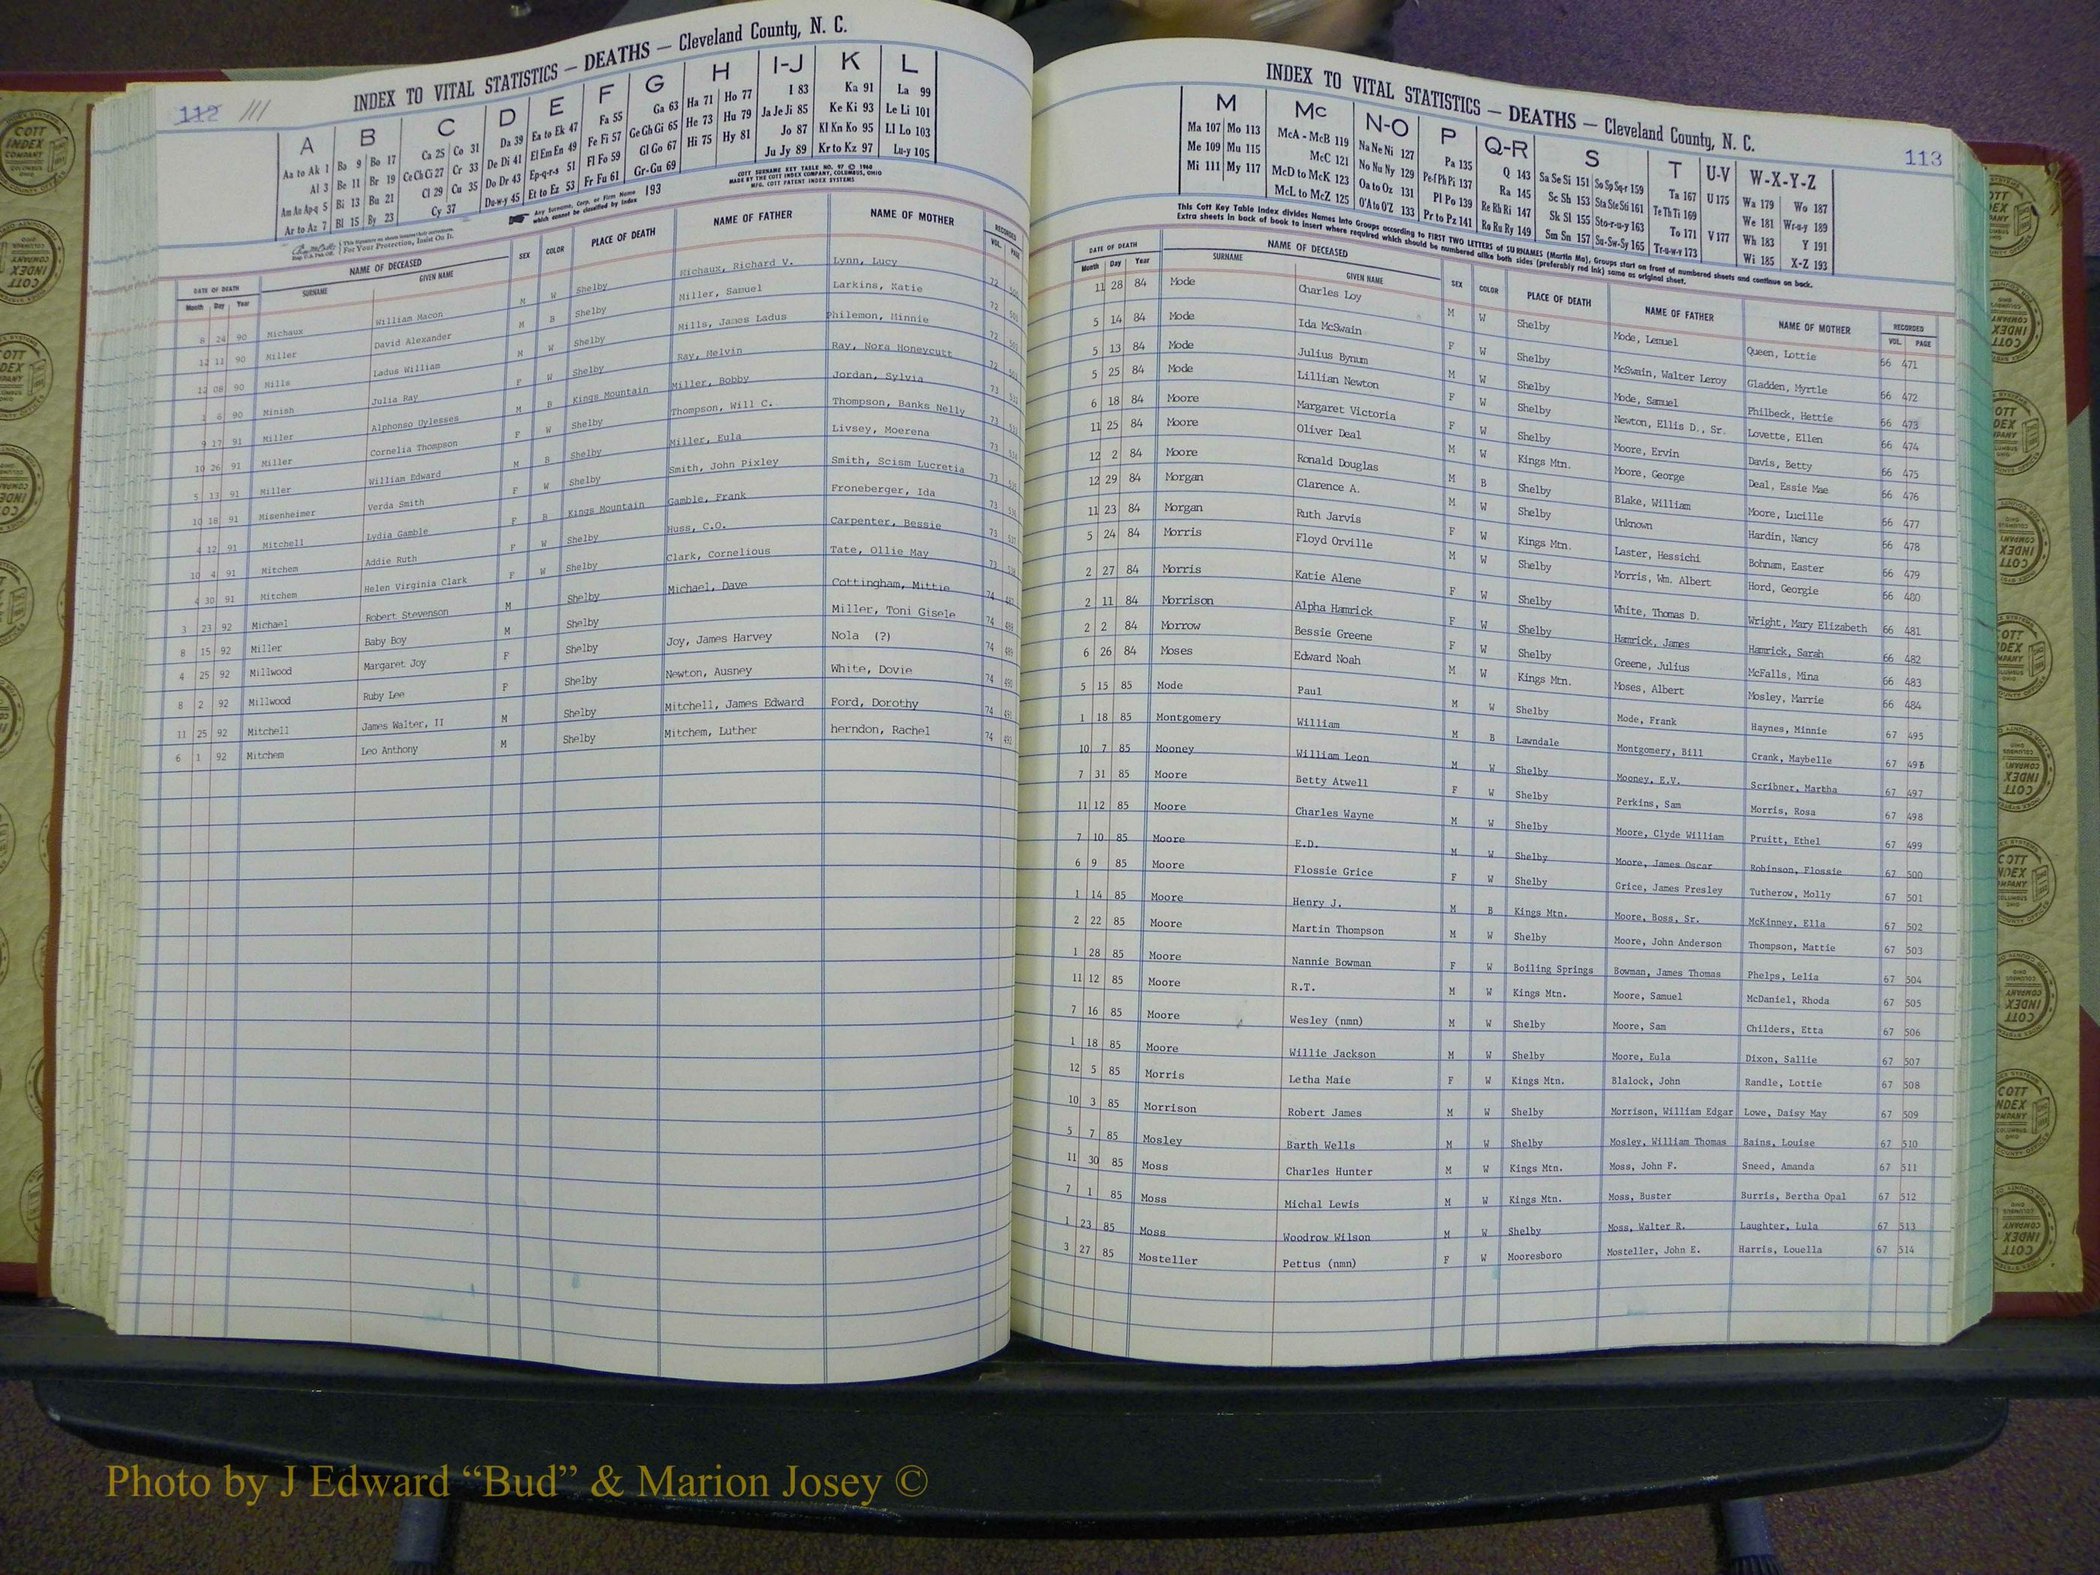 112 111
INDEX TO VITAL STATISTICS — DEATHS — Cleveland County, N. C.
A B C D E F G H I-J K L
Aa to Ak 1 Ba 9 Bo 17 Ca 25 Co 31 Da 39 Ea to Ek 47 Fa 55 Ga 63 Ha 71 Ho 77 I 83 Ka 91 La 99
Al 3 Be 11 Br 19 Ce Ch Ci 27 Cr 33 De Di 41 El Em En 49 Fe Fi 57 Ge Gh Gi 65 He 73 Hu 79 Ja Je Ji 85 Ke Ki 93 Le Li 101
Am An Ap-q 5 Bi 13 Bu 21 Cl 29 Cu 35 Do Dr 43 Ep-q-r-s 51 Fl Fo 59 Gl Go 67 Hi 75 Hy 81 Jo 87 Kl Kn Ko 95 Ll Lo 103
Ar to Az 7 Bl 15 By 23 Cy 37 Du-w-y 45 Et to Ez 53 Fr Fu 61 Gr-Gu 69 Ju Jy 89 Kr to Kz 97 Lu-y 105
Any Surname, Corp. or Firm Name which cannot be classified by Index 193
COTT SURNAME KEY TABLE NO. 97 © 1960
MADE BY THE COTT INDEX COMPANY, COLUMBUS, OHIO
MFG. COTT PATENT INDEX SYSTEMS
For Your Protection, Insist On It.
DATE OF DEATH NAME OF DECEASED SEX COLOR PLACE OF DEATH NAME OF FATHER NAME OF MOTHER RECORDED
Month Day Year SURNAME GIVEN NAME VOL. PAGE
8 24 90 Michaux William Macon M W Shelby Michaux, Richard V. Lynn, Lucy 72
12 11 90 Miller David Alexander M B Shelby Miller, Samuel Larkins, Katie 72
12 08 90 Mills Ladus William M W Shelby Mills, James Ladus Philemon, Minnie 72
6 90 Minish Julia Ray F W Shelby Ray, Melvin Ray, Nora Honeycutt 72
9 17 91 Miller Alphonso Oylesses M B Kings Mountain Miller, Bobby Jordan, Sylvia 73
10 26 91 Miller Cornelia Thompson F W Shelby Thompson, Will C. Thompson, Banks Nelly 73
5 13 91 Miller William Edward M B Shelby Miller, Eula Livsey, Moerena 73
10 18 91 Misenheimer Verda Smith F W Shelby Smith, John Pixley Smith, Scism Lucretia 73
4 12 91 Mitchell Lydia Gamble F B Kings Mountain Gamble, Frank Froneberger, Ida 73
10 4 91 Mitchem Addie Ruth F W Shelby Huss, C.O. Carpenter, Bessie 73
4 30 91 Mitchem Helen Virginia Clark F W Shelby Clark, Cornelious Tate, Ollie May 73
3 23 92 Michael Robert Stevenson M Shelby Michael, Dave Cottingham, Mittie 74 487
8 15 92 Miller Baby Boy M Shelby Miller, Toni Gisele 74 488
4 25 92 Millwood Margaret Joy F Shelby Joy, James Harvey Nola (?) 74 489
8 2 92 Millwood Ruby Lee F Shelby Newton, Ausney White, Dovie 74 490
11 25 92 Mitchell James Walter, II M Shelby Mitchell, James Edward Ford, Dorothy 74 491
6 1 92 Mitchem Leo Anthony M Shelby Mitchem, Luther herndon, Rachel 74 492
INDEX TO VITAL STATISTICS — DEATHS — Cleveland County, N. C.
113
M Mc N-O P Q-R S T U-V W-X-Y-Z
Ma 107 Mo 113 McA - McB 119 Na Ne Ni 127 Pa 135 Q 143 Sa Se Si 151 So Sp Sq-r 159 Ta 167 U 175 Wa 179 Wo 187
Me 109 Mu 115 McC 121 No Nu Ny 129 Pe-f Ph Pi 137 Ra 145 Sc Sh 153 Sta Ste Sti 161 Te Th Ti 169 We 181 Wr-u-y 189
Mi 111 My 117 McD to McK 123 Oa to Oz 131 Pl Po 139 Re Rh Ri 147 Sk Sl 155 Sto-r-u-y 163 To 171 V 177 Wh 183 Y 191
McL to McZ 125 O'A to O'Z 133 Pr to Pz 141 Ro Ru Ry 149 Sm Sn 157 Su-Sw-Sy 165 Tr-u-w-y 173 Wi 185 X-Z 193
This Cott Key Table Index divides Names into Groups according to FIRST TWO LETTERS of SURNAMES (Martin Ma), Groups start on front of numbered sheets and continue on back.
Extra sheets in back of book to insert where required which should be numbered alike both sides (preferably red ink) same as original sheet.
DATE OF DEATH NAME OF DECEASED SEX COLOR PLACE OF DEATH NAME OF FATHER NAME OF MOTHER RECORDED
Month Day Year SURNAME GIVEN NAME VOL. PAGE
11 28 84 Mode Charles Loy M W Shelby Mode, Lemuel Queen, Lottie 66 471
5 14 84 Mode Ida McSwain F W Shelby McSwain, Walter Leroy Gladden, Myrtle 66 472
5 13 84 Mode Julius Bynum M W Shelby Mode, Samuel Philbeck, Hettie 66 473
5 25 84 Mode Lillian Newton F W Shelby Newton, Ellis D., Sr. Lovette, Ellen 66 474
6 18 84 Moore Margaret Victoria F W Shelby Moore, Ervin Davis, Betty 66 475
11 25 84 Moore Oliver Deal M W Kings Mtn. Moore, George Deal, Essie Mae 66 476
12 2 84 Moore Ronald Douglas M B Shelby Blake, William Moore, Lucille 66 477
12 29 84 Morgan Clarence A. M W Shelby Unknown Hardin, Nancy 66 478
11 23 84 Morgan Ruth Jarvis F W Kings Mtn. Laster, Hessichi Bohnam, Easter 66 479
5 24 84 Morris Floyd Orville M W Shelby Morris, Wm. Albert Hord, Georgie 66 480
2 27 84 Morris Katie Alene F W Shelby White, Thomas D. Wright, Mary Elizabeth 66 481
2 11 84 Morrison Alpha Hamrick F W Shelby Hamrick, James Hamrick, Sarah 66 482
2 2 84 Morrow Bessie Greene F W Shelby Greene, Julius McFalls, Mina 66 483
6 26 84 Moses Edward Noah M W Kings Mtn. Moses, Albert Mosley, Marrie 66 484
5 15 85 Mode Paul M W Shelby Mode, Frank Haynes, Minnie 67 495
1 18 85 Montgomery William M B Lawndale Montgomery, Bill Crank, Maybelle 67 496
10 7 85 Mooney William Leon M W Shelby Mooney, E.V. Scribner, Martha 67 497
7 31 85 Moore Betty Atwell F W Shelby Perkins, Sam Morris, Rosa 67 498
11 12 85 Moore Charles Wayne M W Shelby Moore, Clyde William Pruitt, Ethel 67 499
7 10 85 Moore E.D. M W Shelby Moore, James Oscar Robinson, Flossie 67 500
6 9 85 Moore Flossie Grice F W Shelby Grice, James Presley Tutherow, Molly 67 501
1 14 85 Moore Henry J. M B Kings Mtn. Moore, Boss, Sr. McKinney, Ella 67 502
2 22 85 Moore Martin Thompson M W Shelby Moore, John Anderson Thompson, Mattie 67 503
1 28 85 Moore Nannie Bowman F W Boiling Springs Bowman, James Thomas Phelps, Lelia 67 504
11 12 85 Moore R.T. M W Kings Mtn. Moore, Samuel McDaniel, Rhoda 67 505
7 16 85 Moore Wesley (nmn) M W Shelby Moore, Sam Childers, Etta 67 506
1 18 85 Moore Willie Jackson M W Shelby Moore, Eula Dixon, Sallie 67 507
12 5 85 Morris Letha Maie F W Kings Mtn. Blalock, John Randle, Lottie 67 508
10 3 85 Morrison Robert James M W Shelby Morrison, William Edgar Lowe, Daisy May 67 509
5 7 85 Mosley Barth Wells M W Shelby Mosley, William Thomas Bains, Louise 67 510
11 30 85 Moss Charles Hunter M W Kings Mtn. Moss, John F. Sneed, Amanda 67 511
7 1 85 Moss Michal Lewis M W Kings Mtn. Moss, Buster Burris, Bertha Opal 67 512
1 23 85 Moss Woodrow Wilson M W Shelby Moss, Walter R. Laughter, Lula 67 513
3 27 85 Mosteller Pettus (nmn) F W Mooresboro Mosteller, John E. Harris, Louella 67 514
Photo by J Edward “Bud” & Marion Josey ©